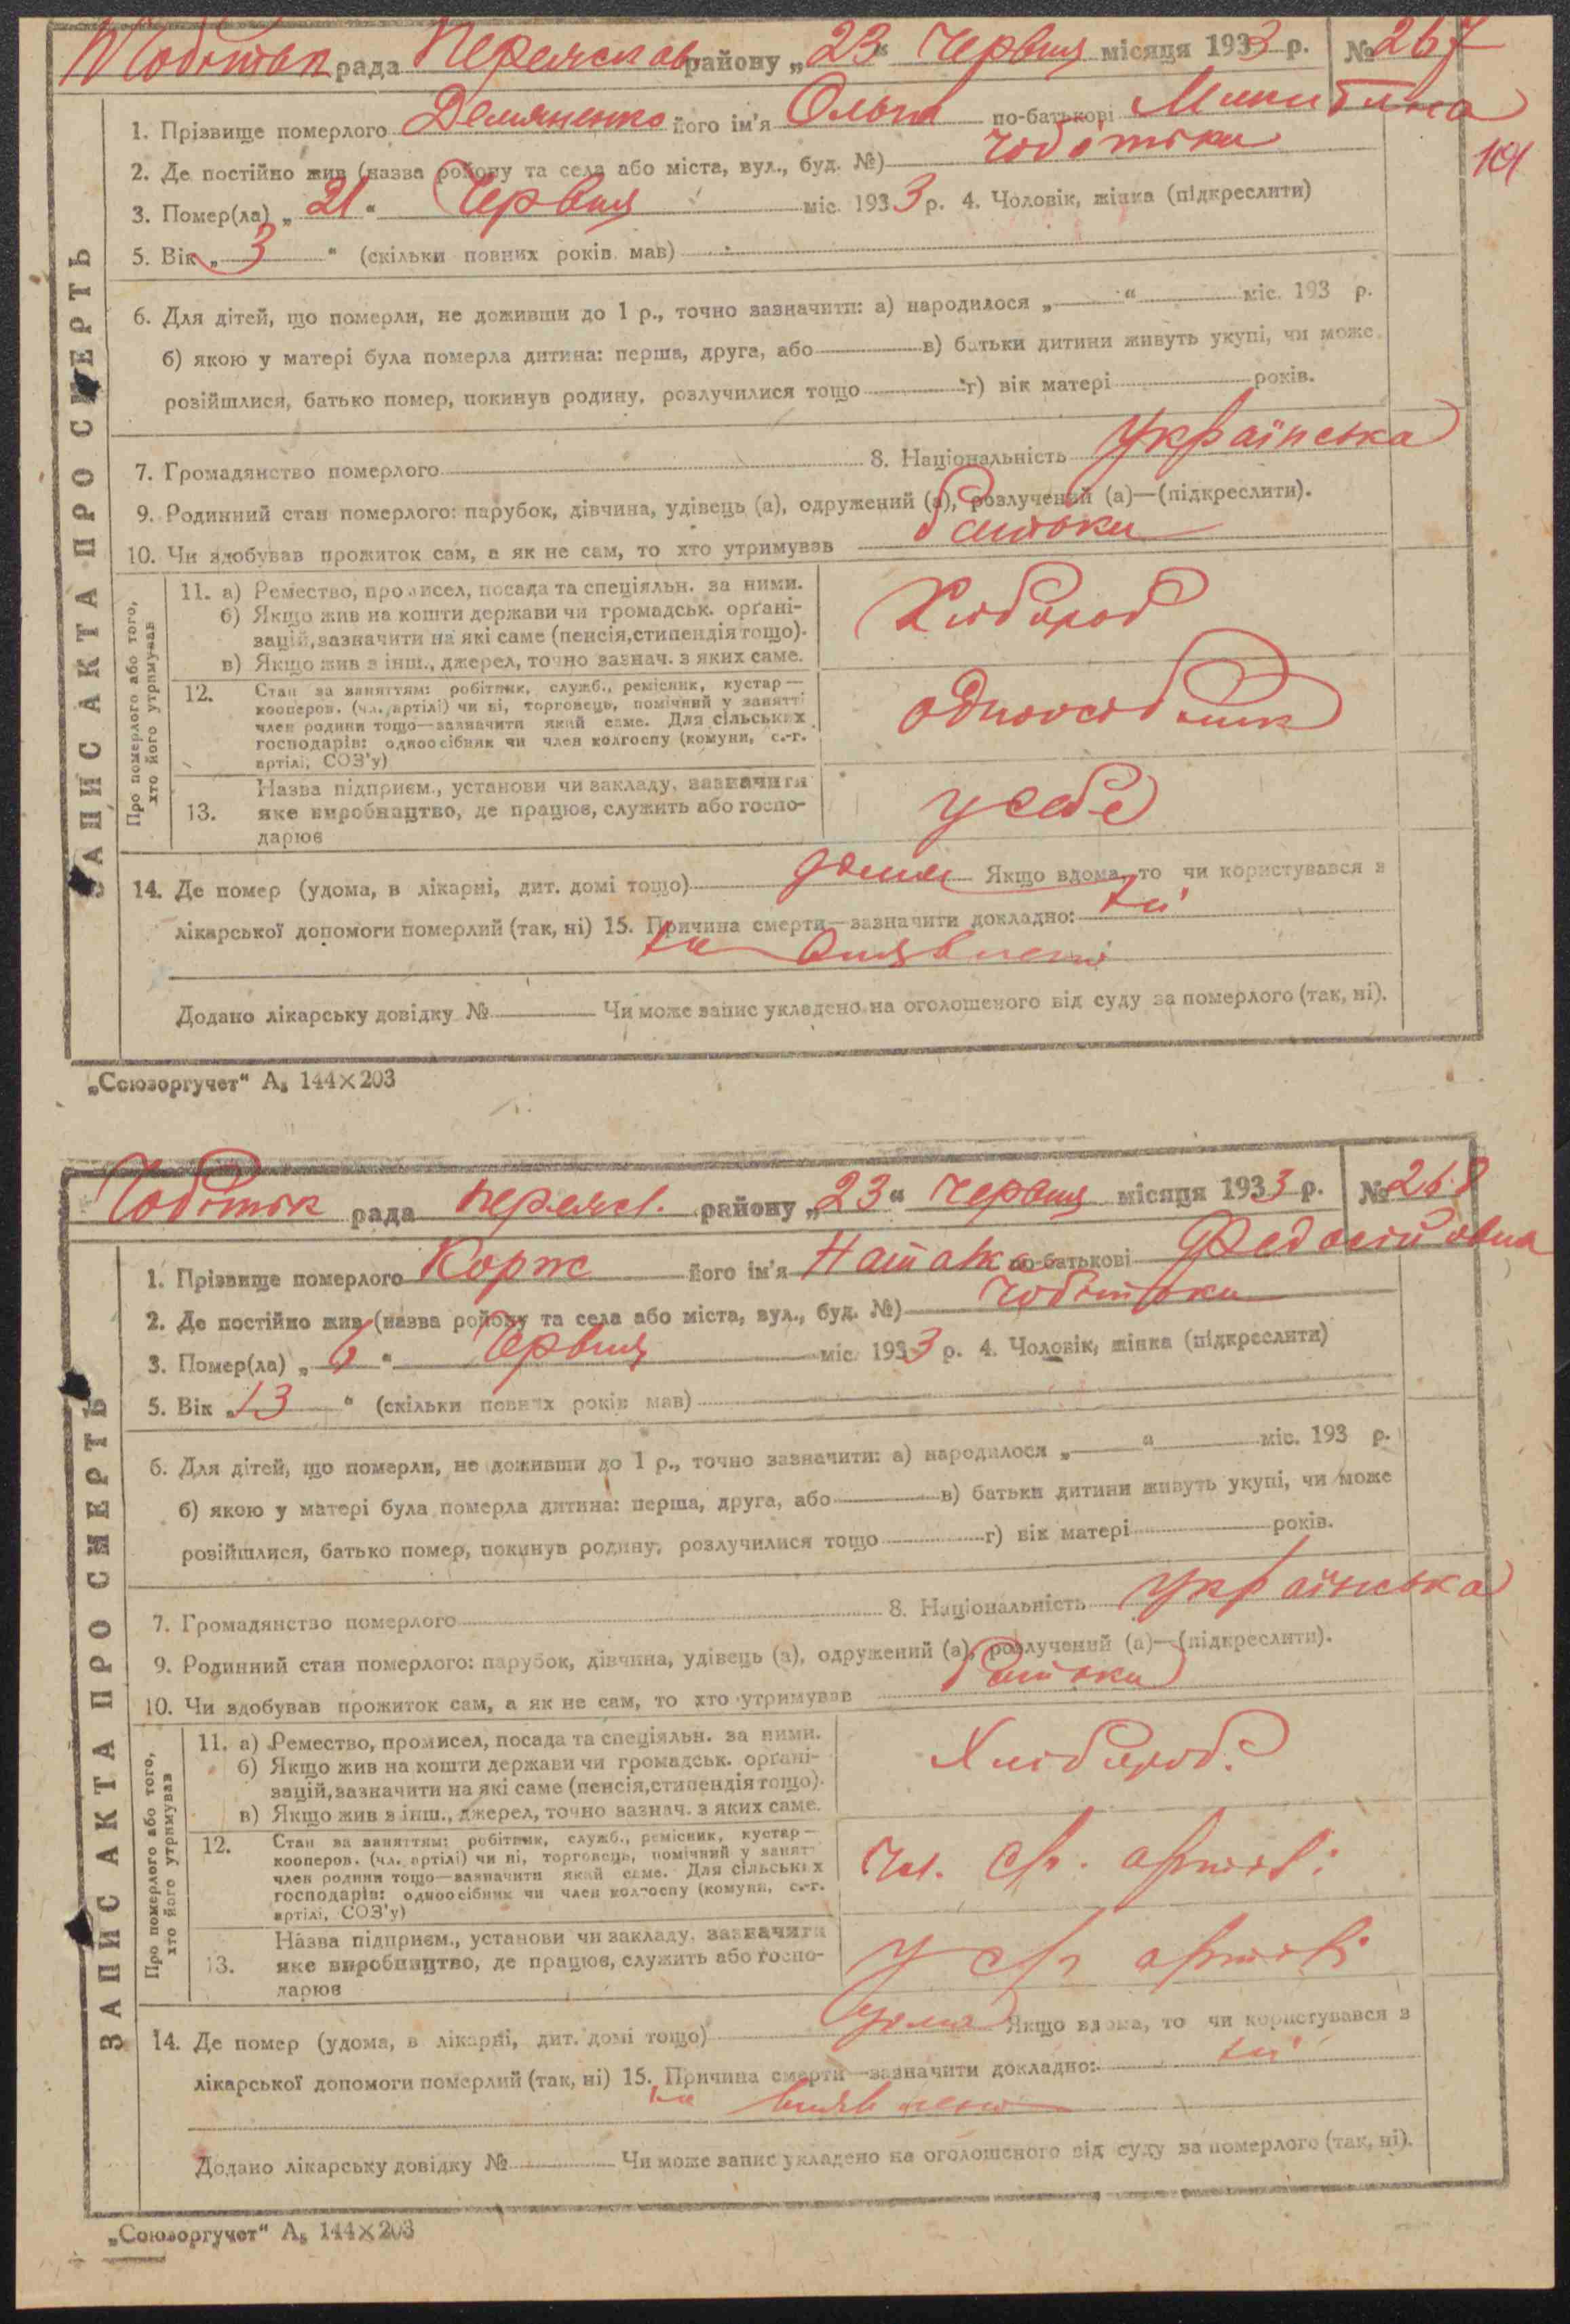 Чобітськ рада Переяслав району „23“ Червня місяця 1933 р. № 267
101
ЗАПИС АКТА ПРО СМЕРТЬ
1. Прізвище померлого Демяненко його ім'я Ольга по-батькові Микитівна
2. Де постійно жив (назва ройону та села або міста, вул., буд. №) Чобітьки
3. Помер(ла) „21“ Червня міс. 1933 р. 4. Чоловік, жінка (підкреслити)
5. Вік „3“ (скільки повних років мав)
6. Для дітей, що померли, не доживши до 1 р., точно зазначити: а) народилося „ “ міс. 193 р.
б) якою у матері була померла дитина: перша, друга, або в) батьки дитини живуть укупі, чи може
розійшлися, батько помер, покинув родину, розлучилися тощо г) вік матері років.
7. Громадянство померлого 8. Національність Українська
9. Родинний стан померлого: парубок, дівчина, удівець (а), одружений (а), розлучений (а)—(підкреслити).
10. Чи здобував прожиток сам, а як не сам, то хто утримував батьки
Про померлого або того, хто його утримував
11. а) Ремество, промисел, посада та спеціяльн. за ними.
б) Якщо жив на кошти держави чи громадськ. орґані-
зацій, зазначити на які саме (пенсія, стипендія тощо).
в) Якщо жив з інш., джерел, точно зазнач. з яких саме.
Хлібороб
12. Стан за заняттям: робітник, служб., ремісник, кустар—
кооперов. (чл. артілі) чи ні, торговець, помічний у занятті
член родини тощо—зазначити який саме. Для сільських
господарів: одноосібник чи член колгоспу (комуни, с.-г.
артілі, СОЗ'у)
одноосібник
13. Назва підприєм., установи чи закладу, зазначити
яке виробництво, де працює, служить або госпо-
дарює
у себе
14. Де помер (удома, в лікарні, дит. домі тощо) удома Якщо вдома, то чи користувався з
лікарської допомоги померлий (так, ні) 15. Причина смерти—зазначити докладно: ні
не виявлено
Додано лікарську довідку № Чи може запис укладено на оголошеного від суду за померлого (так, ні).
„Союзоргучет“ А₅ 144×203
Чобітськ рада переясл. району „23“ червня місяця 1933 р. № 268
ЗАПИС АКТА ПРО СМЕРТЬ
1. Прізвище померлого Корж його ім'я Наталка по-батькові Федосіївна
2. Де постійно жив (назва ройону та села або міста, вул., буд. №) Чобітьки
3. Помер(ла) „6“ Червня міс. 1933 р. 4. Чоловік, жінка (підкреслити)
5. Вік „13“ (скільки повних років мав)
6. Для дітей, що померли, не доживши до 1 р., точно зазначити: а) народилося „ “ міс. 193 р.
б) якою у матері була померла дитина: перша, друга, або в) батьки дитини живуть укупі, чи може
розійшлися, батько помер, покинув родину, розлучилися тощо г) вік матері років.
7. Громадянство померлого 8. Національність Українська
9. Родинний стан померлого: парубок, дівчина, удівець (а), одружений (а), розлучений (а)—(підкреслити).
10. Чи здобував прожиток сам, а як не сам, то хто утримував батьки
Про померлого або того, хто його утримував
11. а) Ремество, промисел, посада та спеціяльн. за ними.
б) Якщо жив на кошти держави чи громадськ. орґані-
зацій, зазначити на які саме (пенсія, стипендія тощо).
в) Якщо жив з інш., джерел, точно зазнач. з яких саме.
Хлібороб.
12. Стан за заняттям: робітник, служб., ремісник, кустар—
кооперов. (чл. артілі) чи ні, торговець, помічний у занят
член родини тощо—зазначити який саме. Для сільських
господарів: одноосібник чи член колгоспу (комуни, с.-г.
артілі, СОЗ'у)
чл. с/г. артілі
13. Назва підприєм., установи чи закладу, зазначити
яке виробництво, де працює, служить або госпо-
дарює
у с/г артілі
14. Де помер (удома, в лікарні, дит. домі тощо) удома Якщо вдома, то чи користувався з
лікарської допомоги померлий (так, ні) 15. Причина смерти—зазначити докладно: ні
не виявлено
Додано лікарську довідку № Чи може запис укладено на оголошеного від суду за померлого (так, ні).
„Союзоргучет“ А₅ 144×203